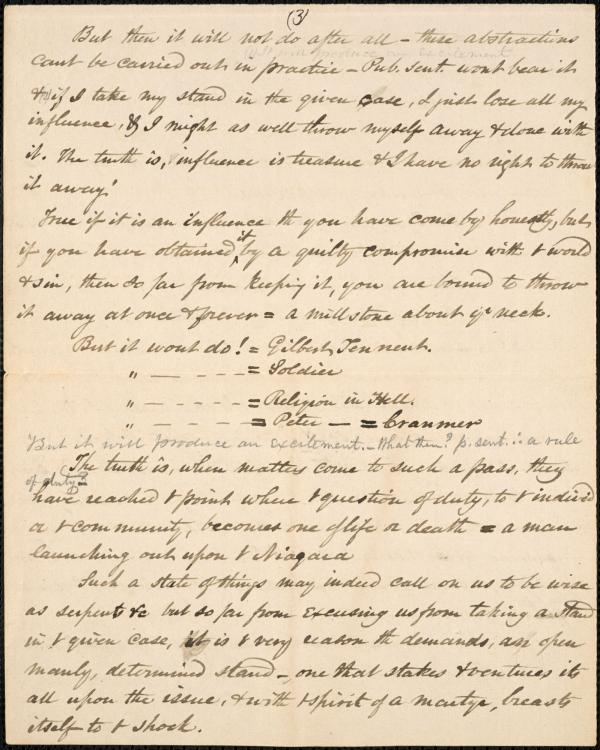 (3)
But then it will not do after all – these abstractions
cant be carried out in practice – Pub. sent. wont bear it
& if I take my stand in the given case, I just lose all my
influence, & I might as well throw myself away & done with
it. The truth is, influence is treasure & I have no right to throw
it away!
True if it is an influence th you have come by honestly, but
if you have obtained it by a guilty compromise with t world
& sin, then so far from keeping it, you are bound to throw
it away at once & forever = a millstone about yr neck.
But it wont do! = Gilbert Tennent.
" — - - - = Soldier
" - - - - - = Religion in Hell.
" - - - - - = Peter — = Cranmer
But it will produce an excitement. – What then? p. sent. is a rule
of duty?
The truth is, when matters come to such a pass, they
have reached t point where t question of duty, to t individ
or t community, becomes one of life or death = a man
launching out upon t Niagara
Such a state of things may indeed call on us to be wise
as serpents &c but so far from excusing us from taking a stand
in t given case, it is t very reason th demands, an open
manly, determined stand – one that stakes & ventures its
all upon the issue, & with t spirit of a martyr, breasts
itself to t shock.